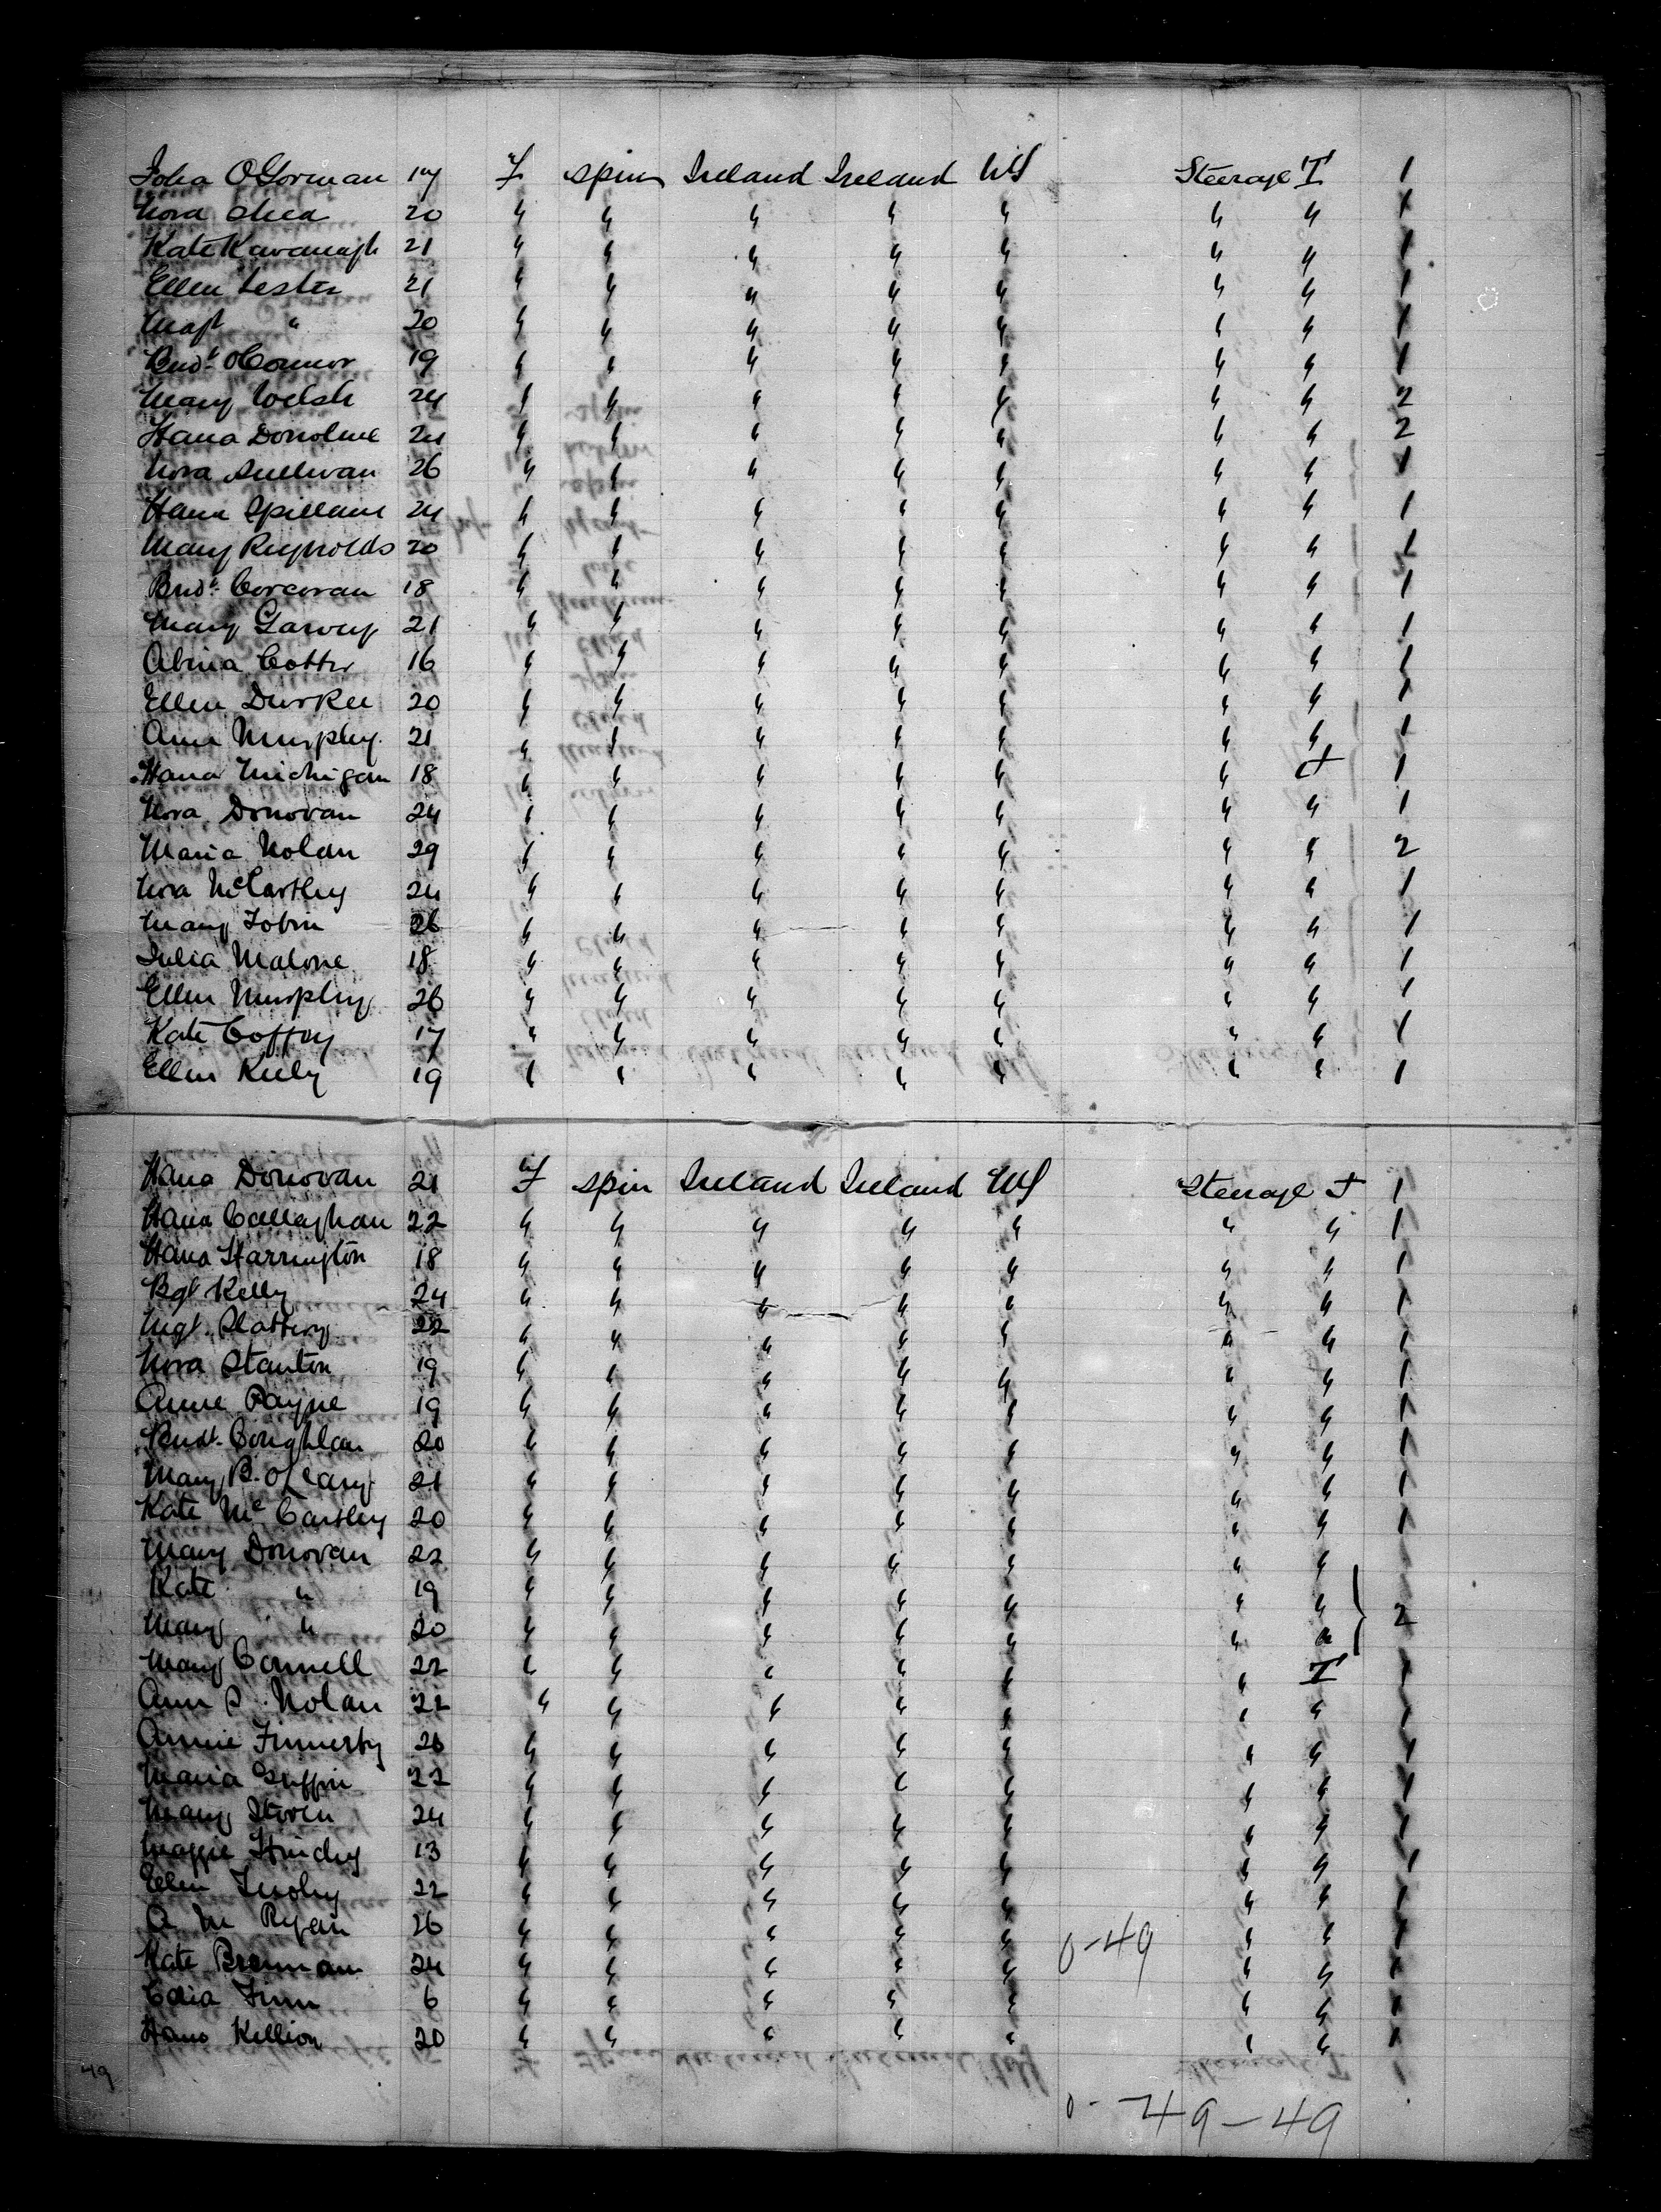 Joha O'Gorman 17 F spin Ireland Ireland US Steerage T 1
Nora Shea 20 " " " " " " " 1
Kate Kavanagh 21 " " " " " " " 1
Ellen Lester 21 " " " " " " " 1
Magt " 20 " " " " " " " 1
Bridt O'Connor 19 " " " " " " " 1
Mary Welsh 24 " " " " " " " 2
Hana Donohue 24 " " " " " " " 2
Nora Sullivan 26 " " " " " " " 1
Hana Spillane 24 " " " " " " " 1
Mary Reynolds 20 " " " " " " " 1
Bridt Corcoran 18 " " " " " " " 1
Mary Garvey 21 " " " " " " " 1
Abina Cotter 16 " " " " " " " 1
Ellen Durkee 20 " " " " " " " 1
Ann Murphy 21 " " " " " " " 1
Hana Michigan 18 " " " " " " 1
Nora Donovan 24 " " " " " " " 1
Maria Nolan 29 " " " " " " " 2
Nora McCarthy 24 " " " " " " " 1
Mary Tobin 26 " " " " " " " 1
Julia Malone 18 " " " " " " " 1
Ellen Murphy 26 " " " " " " " 1
Kate Coffey 17 " " " " " " " 1
Ellen Kiely 19 " " " " " " " 1
Hana Donovan 21 F spin Ireland Ireland US Steerage T 1
Hana Callaghan 22 " " " " " " " 1
Hana Harrington 18 " " " " " " " 1
Bgt Kelly 24 " " " " " " " 1
Mgt Slattery 22 " " " " " " " 1
Nora Stanton 19 " " " " " " " 1
Annie Payne 19 " " " " " " " 1
Bridt Coughlan 20 " " " " " " " 1
Mary B. O'Leary 21 " " " " " " " 1
Kate McCarthy 20 " " " " " " " 1
Mary Donovan 22 " " " " " " "
Kate " 19 " " " " " " " 2
Mary " 20 " " " " " " "
Mary Connell 22 " " " " " " T 1
Ann S. Nolan 22 " " " " " " " 1
Annie Finnerty 26 " " " " " " " 1
Maria Griffin 22 " " " " " " " 1
Mary 24 " " " " " " " 1
Maggie 13 " " " " " " " 1
Ellen 22 " " " " " " " 1
A M Ryan 26 " " " " " " " 1
Kate Brennan 24 " " " " " 0-49 " " 1
Finn 6 " " " " " " " 1
Hana Killion 20 " " " " " " " 1
49
0-49-49